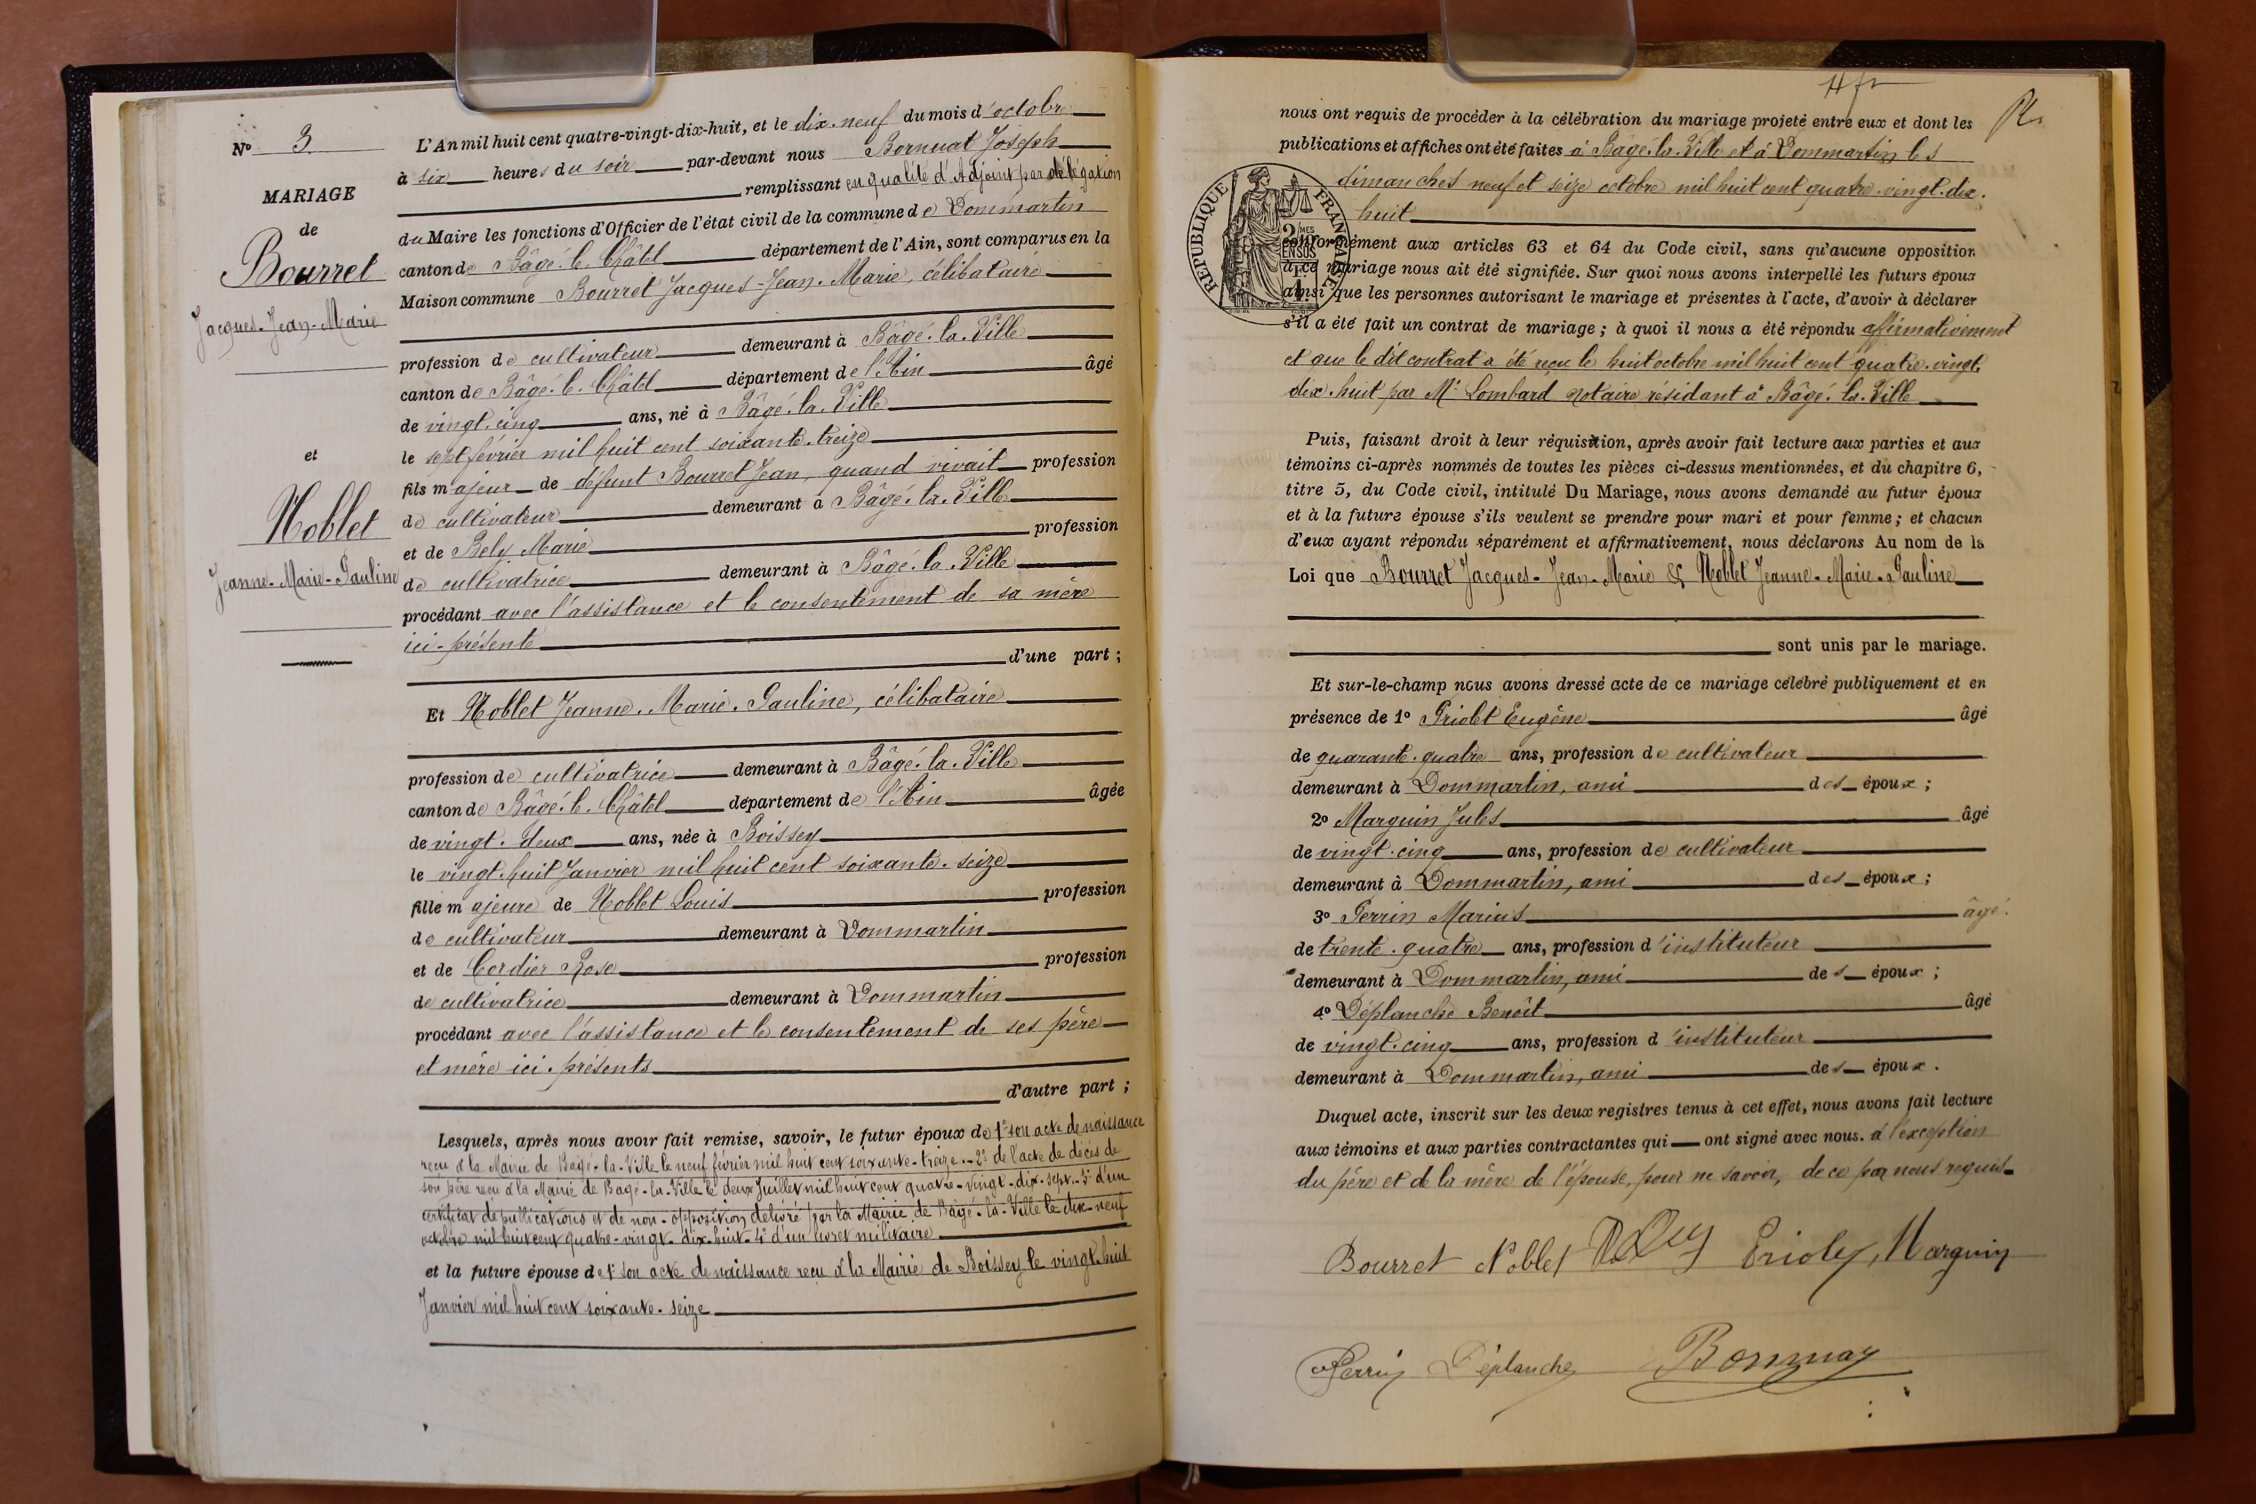 Nº 3
MARIAGE
de
Bourret
Jacques-Jean-Marie
et
Noblet
Jeanne-Marie-Pauline
L'An mil huit cent quatre-vingt-dix-huit, et le dix-neuf du mois d'octobre
à six heures du soir par-devant nous Bornuat Joseph
remplissant en qualité d'Adjoint par délégation
du Maire les fonctions d'Officier de l'état civil de la commune de Dommartin
canton de Bâgé-le-Châtel département de l'Ain, sont comparus en la
Maison commune Bourret Jacques-Jean-Marie, célibataire
profession de cultivateur demeurant à Bâgé-la-Ville
canton de Bâgé-le-Châtel département de l'Ain âgé
de vingt-cinq ans, né à Bâgé-la-Ville
le sept février mil huit cent soixante-treize
fils majeur de défunt Bourret Jean, quand vivait profession
de cultivateur demeurant à Bâgé-la-Ville
et de Bely Marie profession
de cultivatrice demeurant à Bâgé-la-Ville
procédant avec l'assistance et le consentement de sa mère
ici-présente
d'une part ;
Et Noblet Jeanne-Marie-Pauline, célibataire
profession de cultivatrice demeurant à Bâgé-la-Ville
canton de Bâgé-le-Châtel département de l'Ain âgée
de vingt-deux ans, née à Boissey
le vingt-huit Janvier mil huit cent soixante-seize
fille majeure de Noblet Louis profession
de cultivateur demeurant à Dommartin
et de Cordier Rose profession
de cultivatrice demeurant à Dommartin
procédant avec l'assistance et le consentement de ses père
et mère ici-présents
d'autre part ;
Lesquels, après nous avoir fait remise, savoir, le futur époux de 1º son acte de naissance
reçu à la Mairie de Bâgé-la-Ville le neuf février mil huit cent soixante-treize.- 2º de l'acte de décès de
son père reçu à la Mairie de Bâgé-la-Ville le deux Juillet mil huit cent quatre-vingt-dix-sept.- 3º d'un
certificat de publications et de non-opposition délivré par la Mairie de Bâgé-la-Ville le dix-neuf
octobre mil huit cent quatre-vingt-dix-huit- 4º d'un livret militaire
et la future épouse de 1º son acte de naissance reçu à la Mairie de Boissey le vingt-huit
Janvier mil huit cent soixante-seize
nous ont requis de procéder à la célébration du mariage projeté entre eux et dont les
publications et affiches ont été faites à Bâgé-la-Ville et à Dommartin les
dimanches neuf et seize octobre mil huit cent quatre-vingt-dix-
huit
RÉPUBLIQUE FRANÇAISE
conformément aux articles 63 et 64 du Code civil, sans qu'aucune opposition
à ce mariage nous ait été signifiée. Sur quoi nous avons interpellé les futurs époux
ainsi que les personnes autorisant le mariage et présentes à l'acte, d'avoir à déclarer
s'il a été fait un contrat de mariage ; à quoi il nous a été répondu affirmativement
et que le dit contrat a été reçu le huit octobre mil huit cent quatre-vingt-
dix-huit par Mᵉ Lombard notaire résidant à Bâgé-la-Ville
Puis, faisant droit à leur réquisition, après avoir fait lecture aux parties et aux
témoins ci-après nommés de toutes les pièces ci-dessus mentionnées, et du chapitre 6,
titre 5, du Code civil, intitulé Du Mariage, nous avons demandé au futur époux
et à la future épouse s'ils veulent se prendre pour mari et pour femme ; et chacun
d'eux ayant répondu séparément et affirmativement, nous déclarons Au nom de la
Loi que Bourret Jacques-Jean-Marie & Noblet Jeanne-Marie-Pauline
sont unis par le mariage.
Et sur-le-champ nous avons dressé acte de ce mariage célébré publiquement et en
présence de 1º Priolet Eugène âgé
de quarante-quatre ans, profession de cultivateur
demeurant à Dommartin, ami des époux ;
2º Marguin Jules âgé
de vingt-cinq ans, profession de cultivateur
demeurant à Dommartin, ami des époux ;
3º Perrin Marius âgé
de trente-quatre ans, profession d'instituteur
demeurant à Dommartin, ami des époux ;
4º Déplanche Benoît âgé
de vingt-cinq ans, profession d'instituteur
demeurant à Dommartin, ami des époux.
Duquel acte, inscrit sur les deux registres tenus à cet effet, nous avons fait lecture
aux témoins et aux parties contractantes qui ont signé avec nous. à l'exception
du père et de la mère de l'épouse, pour ne savoir, de ce par nous requis.
Bourret Noblet Marguin
Perrin Déplanche